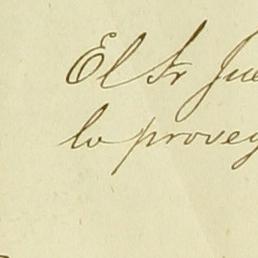 El Sr Jue
lo provey